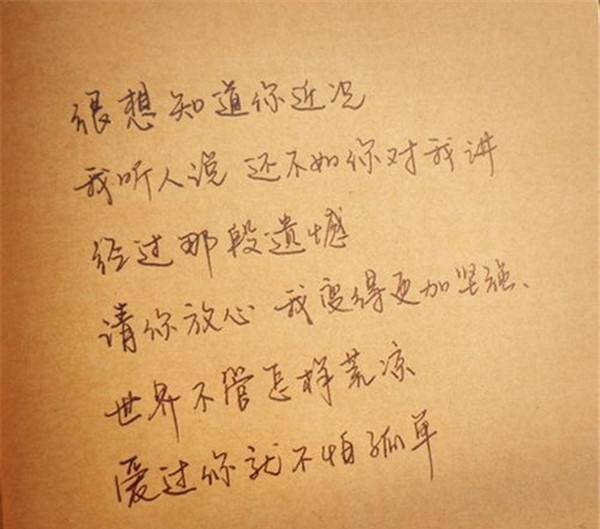 很想知道你近况
我听人说 还不如你对我讲
经过那段遗憾
请你放心 我变得更加坚强、
世界不管怎样荒凉
爱过你就不怕孤单